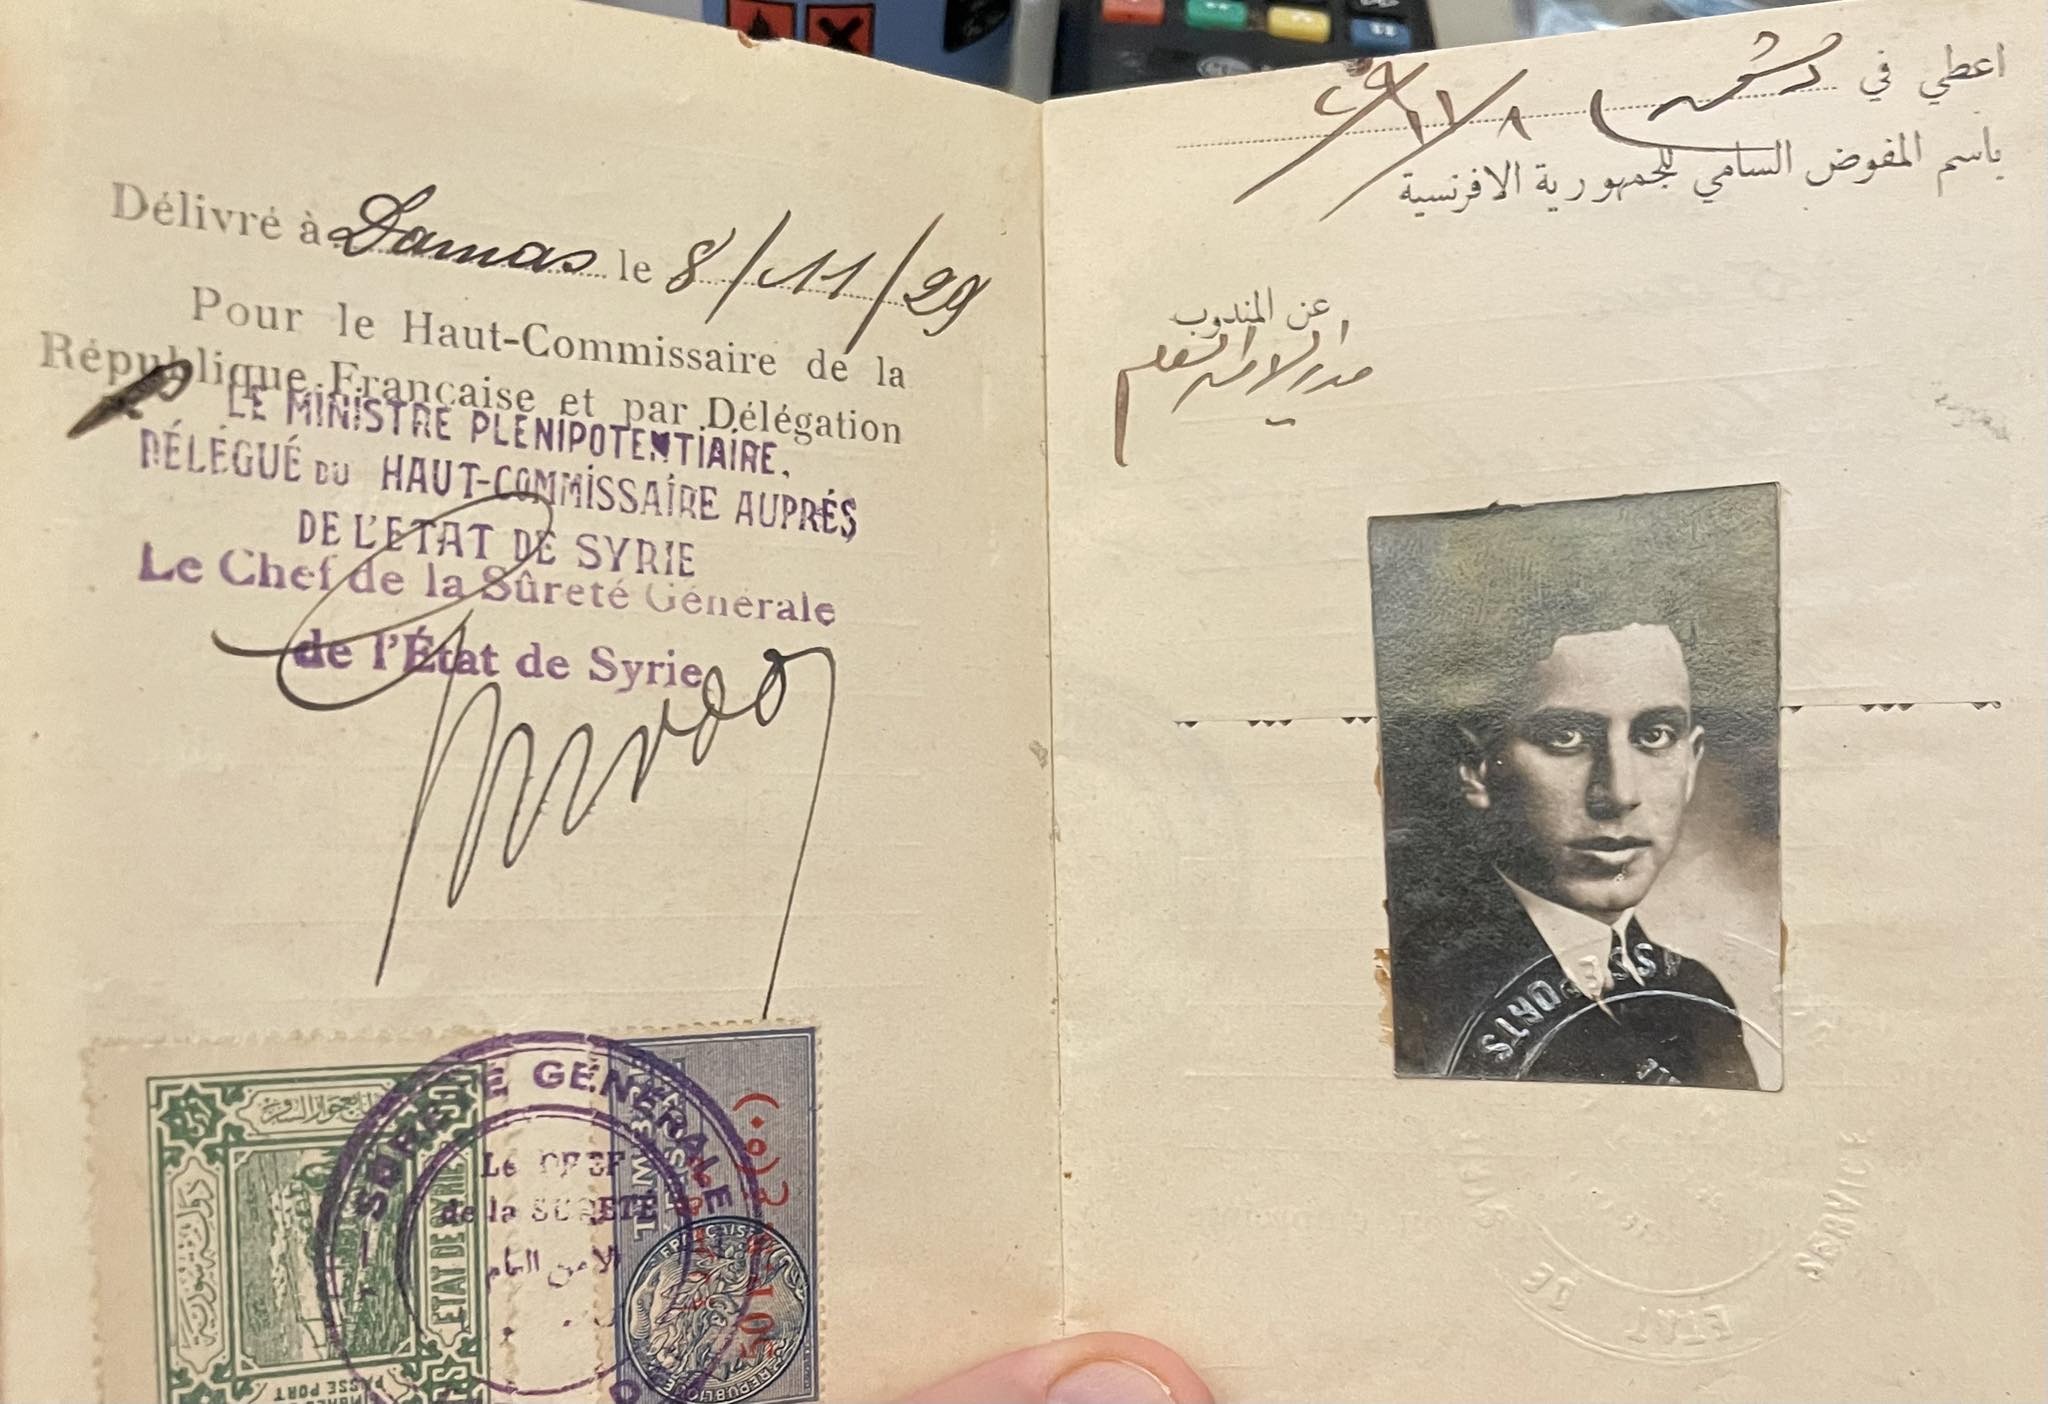 Délivré à Damas le 8/11/29
Pour le Haut-Commissaire de la
République Française et par Délégation
LE MINISTRE PLÉNIPOTENTIAIRE,
DÉLÉGUÉ DU HAUT-COMMISSAIRE AUPRÉS
DE L'ETAT DE SYRIE
Le Chef de la Sûreté Générale
de l'État de Syrie
GÉNÉRALE
Le CHEF
de la SURETÉ
الامن العام
دولة سورية
ETAT DE SYRIE
PASSEPORT
TIMBRE
اعطي في دمشق ٨/١١/٢٩
باسم المفوض السامي للجمهورية الافرنسية
عن المندوب
مدير الامن العام
PASSEPORTS
SERVICE
ETAT DE